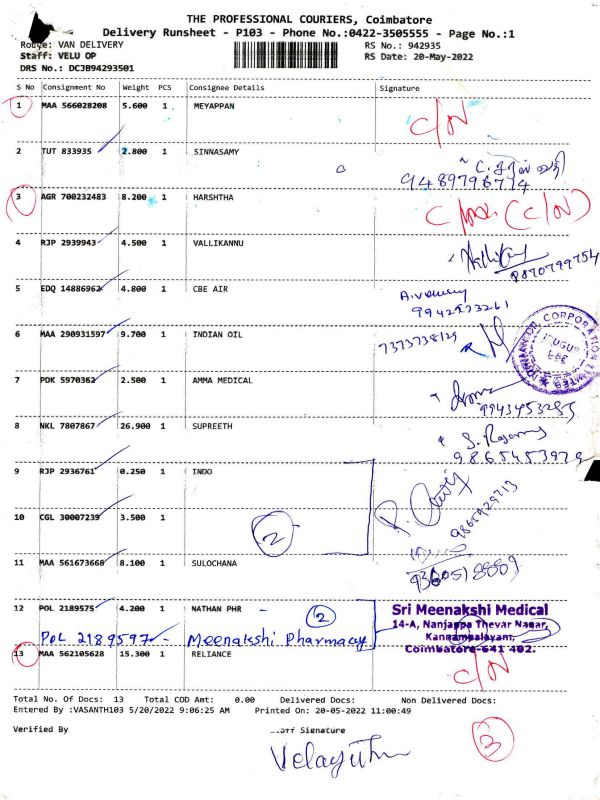 THE PROFESSIONAL COURIERS, Coimbatore
Delivery Runsheet - P103 - Phone No.:0422-3505555 - Page No.:1
Route: VAN DELIVERY RS No.: 942935
Staff: VELU OP RS Date: 20-May-2022
DRS No.: DCJB94293501
S No Consignment No Weight PCS Consignee Details Signature
1 MAA 566028208 5.600 1 MEYAPPAN C/N
2 TUT 833935 2.800 1 SINNASAMY
9489796714
3 AGR 700232483 8.200 1 HARSHTHA (C/N)
4 RJP 2939943 4.500 1 VALLIKANNU
9870799754
5 EDQ 14886962 4.800 1 CBE AIR
9942573261
6 MAA 290931597 9.700 1 INDIAN OIL 7373738129
7 PDK 5970362 2.500 1 AMMA MEDICAL
9943453285
8 NKL 7807867 26.900 1 SUPREETH
9865453979
9 RJP 2936761 0.250 1 INDO
10 CGL 30007239 3.500 1 2
9865929713
11 MAA 561673668 8.100 1 SULOCHANA
9360518889
12 POL 2189575 4.200 1 NATHAN PHR - 2 Sri Meenakshi Medical
14-A, Nanjappa Thevar Nagar,
POL 2189597 - Meenakshi Pharmacy Kannampalayam,
Coimbatore-641 402.
13 MAA 562105628 15.300 1 RELIANCE C/N
Total No. Of Docs: 13 Total COD Amt: 0.00 Delivered Docs: Non Delivered Docs:
Entered By :VASANTH103 5/20/2022 9:06:25 AM Printed On: 20-05-2022 11:00:49
Verified By Signature
3
Velayutham